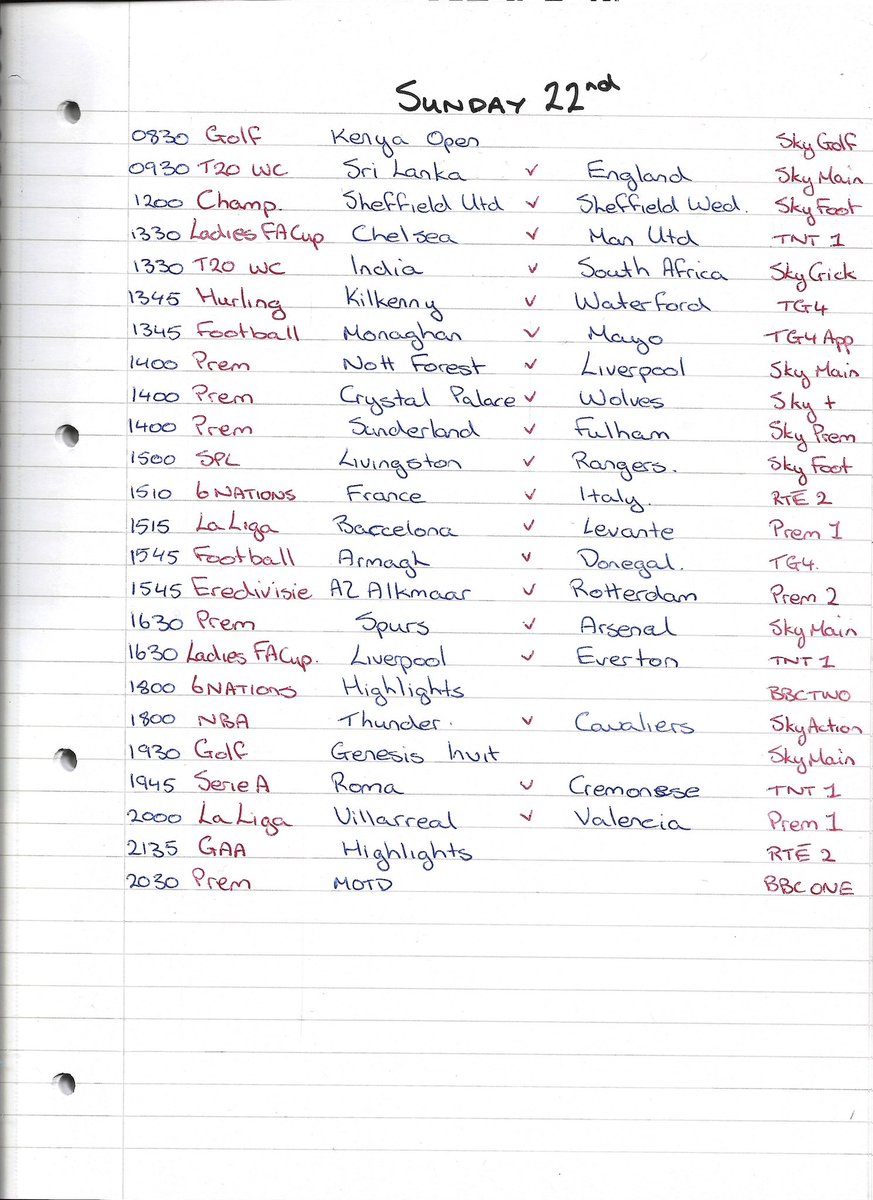 SUNDAY 22nd
0830 Golf Kenya Open Sky Golf
0930 T20 WC Sri Lanka v England Sky Main
1200 Champ. Sheffield Utd v Sheffield Wed. Sky Foot
1330 Ladies FA Cup Chelsea v Man Utd TNT 1
1330 T20 WC India v South Africa Sky Crick
1345 Hurling Kilkenny v Waterford TG4
1345 Football Monaghan v Mayo TG4 App
1400 Prem Nott Forest v Liverpool Sky Main
1400 Prem Crystal Palace v Wolves Sky +
1400 Prem Sunderland v Fulham Sky Prem
1500 SPL Livingston v Rangers. Sky Foot
1510 6 NATIONS France v Italy. RTÉ 2
1515 La Liga Barcelona v Levante Prem 1
1545 Football Armagh v Donegal. TG4.
1545 Eredivisie AZ Alkmaar v Rotterdam Prem 2
1630 Prem Spurs v Arsenal Sky Main
1630 Ladies FA Cup. Liverpool v Everton TNT 1
1800 6 NATIONS Highlights BBC TWO
1800 NBA Thunder. v Cavaliers Sky Action
1930 Golf Genesis Invit Sky Main
1945 Serie A Roma v Cremonese TNT 1
2000 La Liga Villarreal v Valencia Prem 1
2135 GAA Highlights RTÉ 2
2030 Prem MOTD BBC ONE